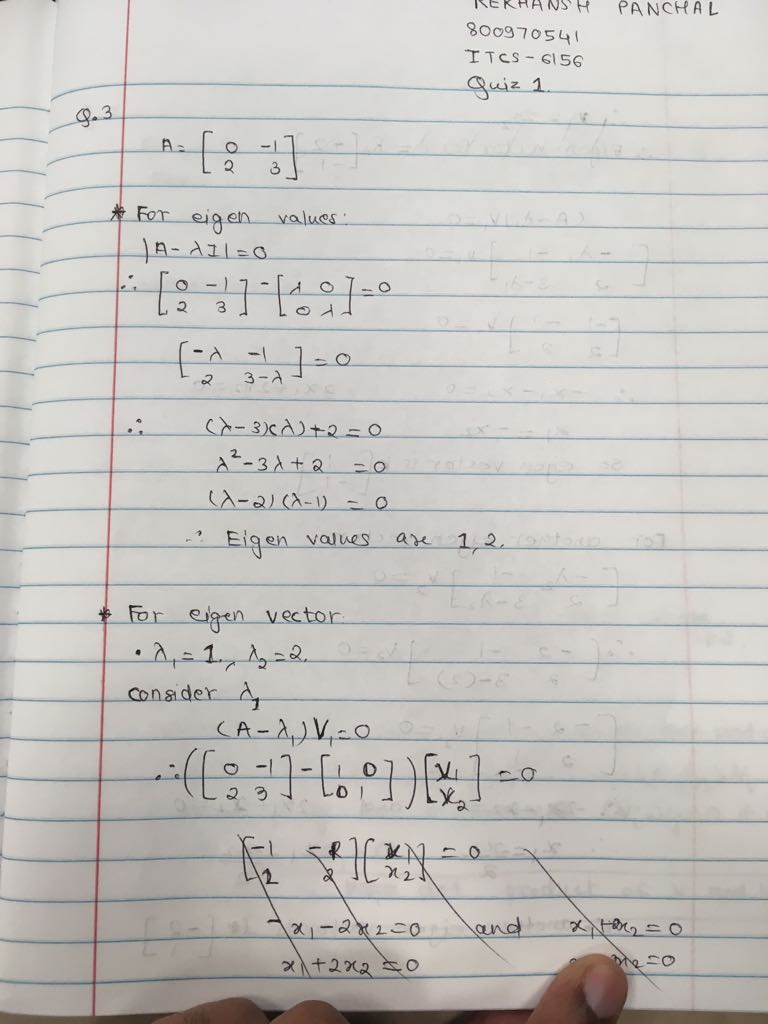 REKHANSH PANCHAL
800970541
ITCS-6156
Quiz 1.
Q.3
A = [0 -1; 2 3]
* For eigen values:
|A - λI| = 0
∴ [0 -1; 2 3] - [λ 0; 0 λ] = 0
[-λ -1; 2 3-λ] = 0
∴ (λ-3)(λ)+2 = 0
λ² - 3λ + 2 = 0
(λ-2)(λ-1) = 0
∴ Eigen values are 1, 2.
* For eigen vector.
• λ₁ = 1, λ₂ = 2.
consider λ₁
(A - λ₁)V₁ = 0
∴ ([0 -1; 2 3] - [1 0; 0 1]) [x₁; x₂] = 0
[x₁; x₂] = 0
-x₁ - 2x₂ = 0 and x₁ + 2x₂ = 0
x₁ + 2x₂ = 0 x₂ = 0